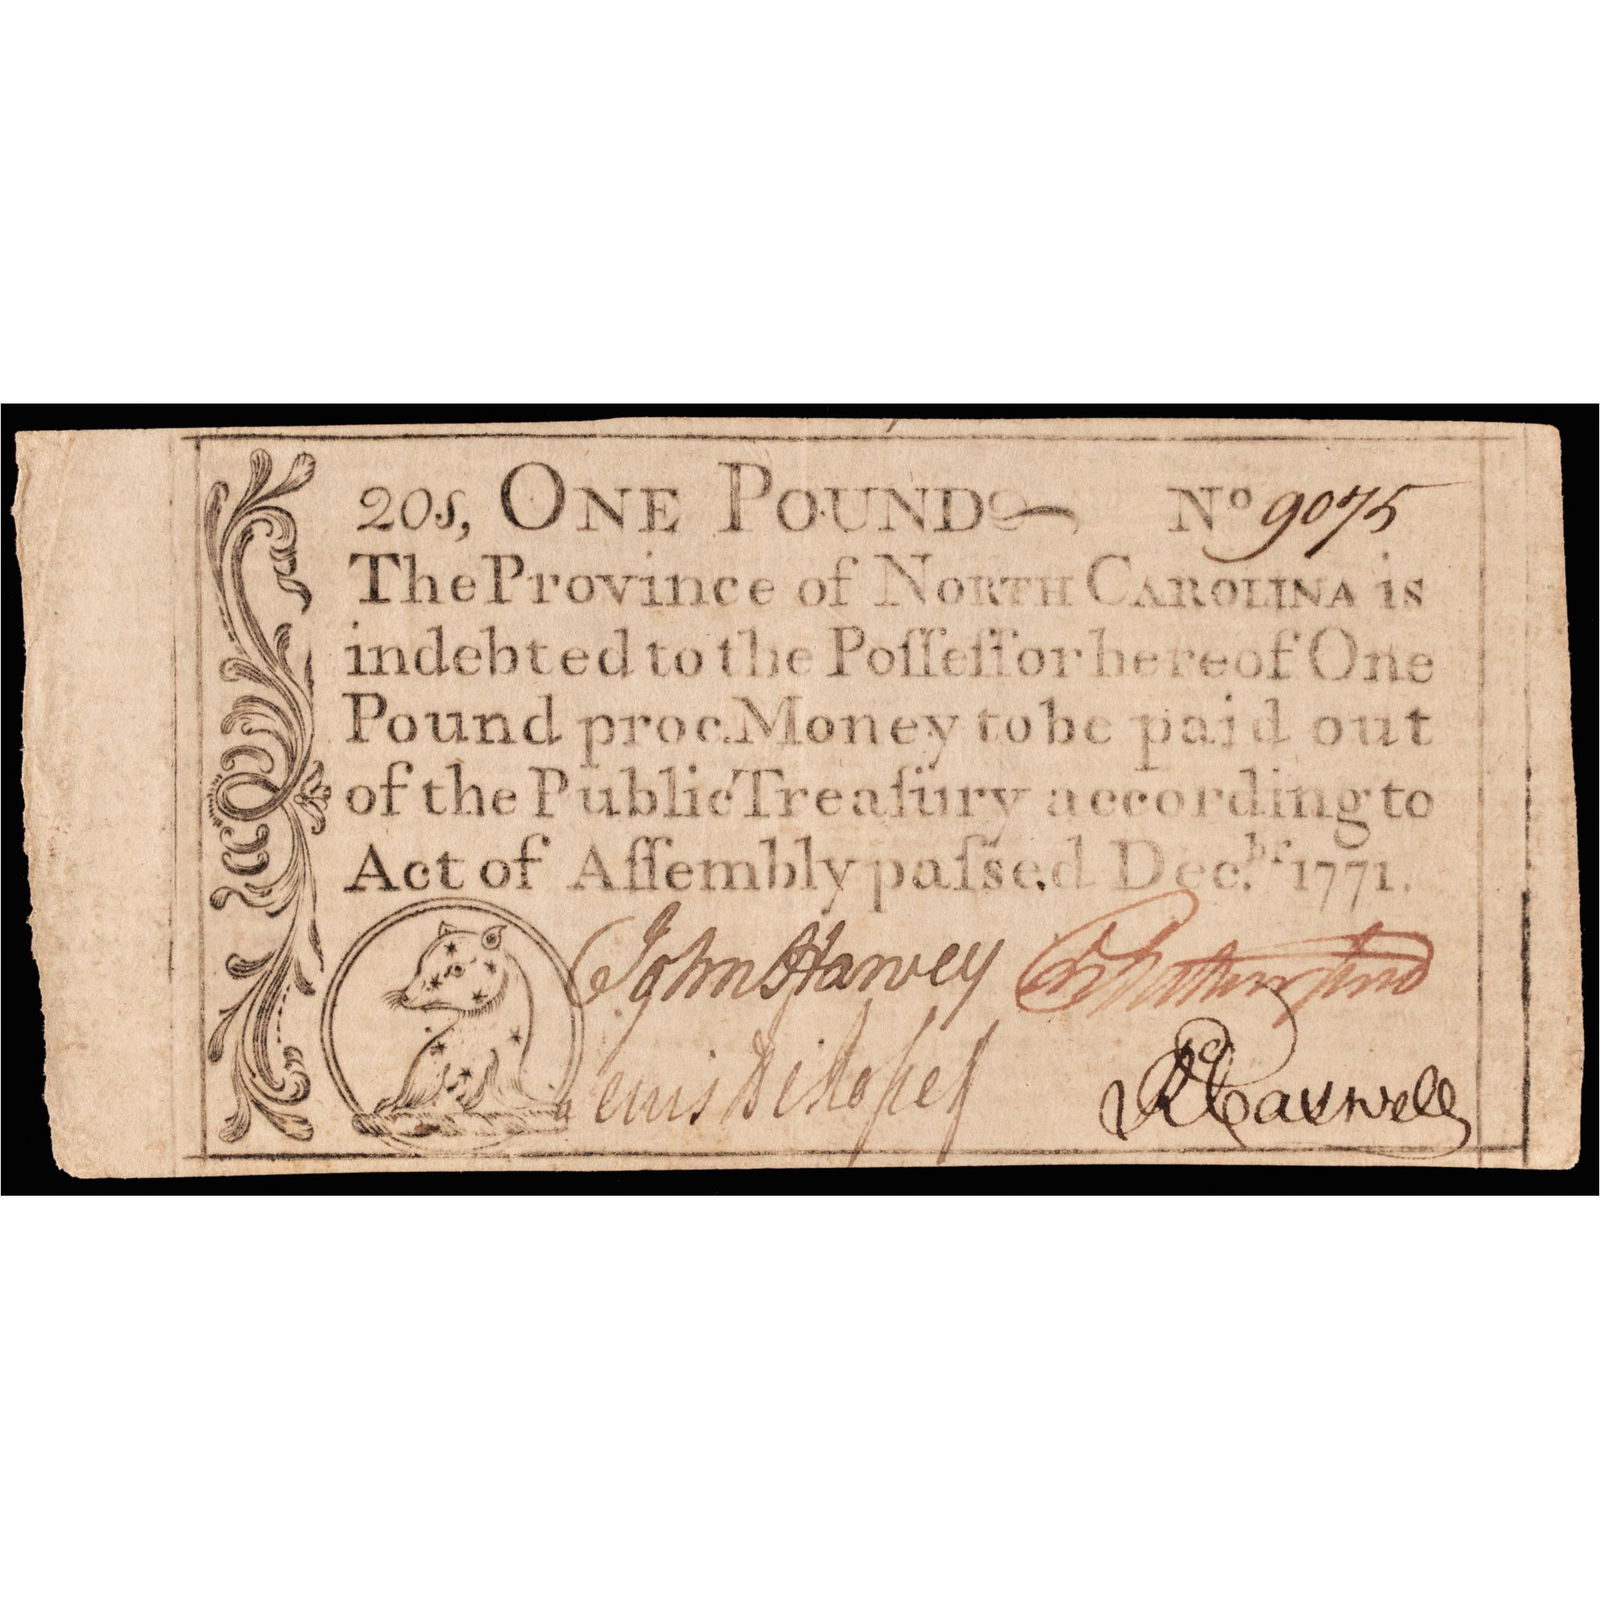 20s, ONE POUND No 9075
The Province of NORTH CAROLINA is
indebted to the Poſſeſſor hereof One
Pound proc. Money to be paid out
of the Public Treaſury according to
Act of Aſſembly paſsed Dec.br 1771.
John Harvey Rutherfurd
Lewis DeRosset RCaswell